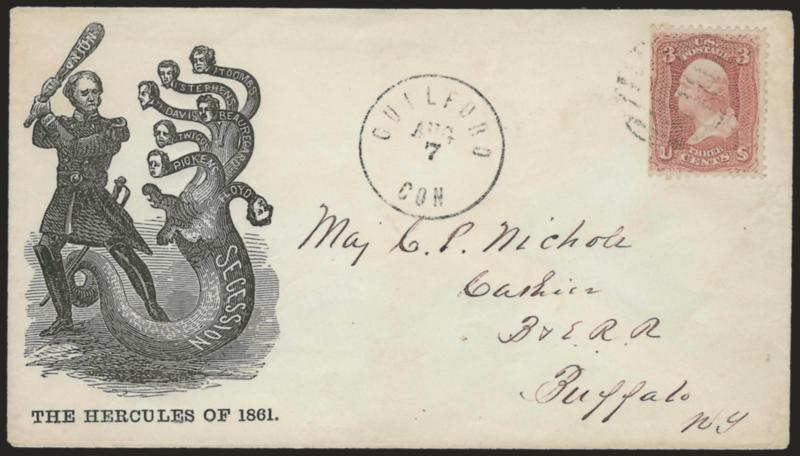 UNION
TOOMBS
STEPHENS
DAVIS
BEAUREGARD
TWIGGS
PICKENS
FLOYD
SECESSION
THE HERCULES OF 1861.
GUILFORD
AUG
7
CON
U.S.
POSTAGE
3 3
THREE
CENTS
U S
Maj C. P. Nichols
Cashier
B & E. R. R
Buffalo
NY